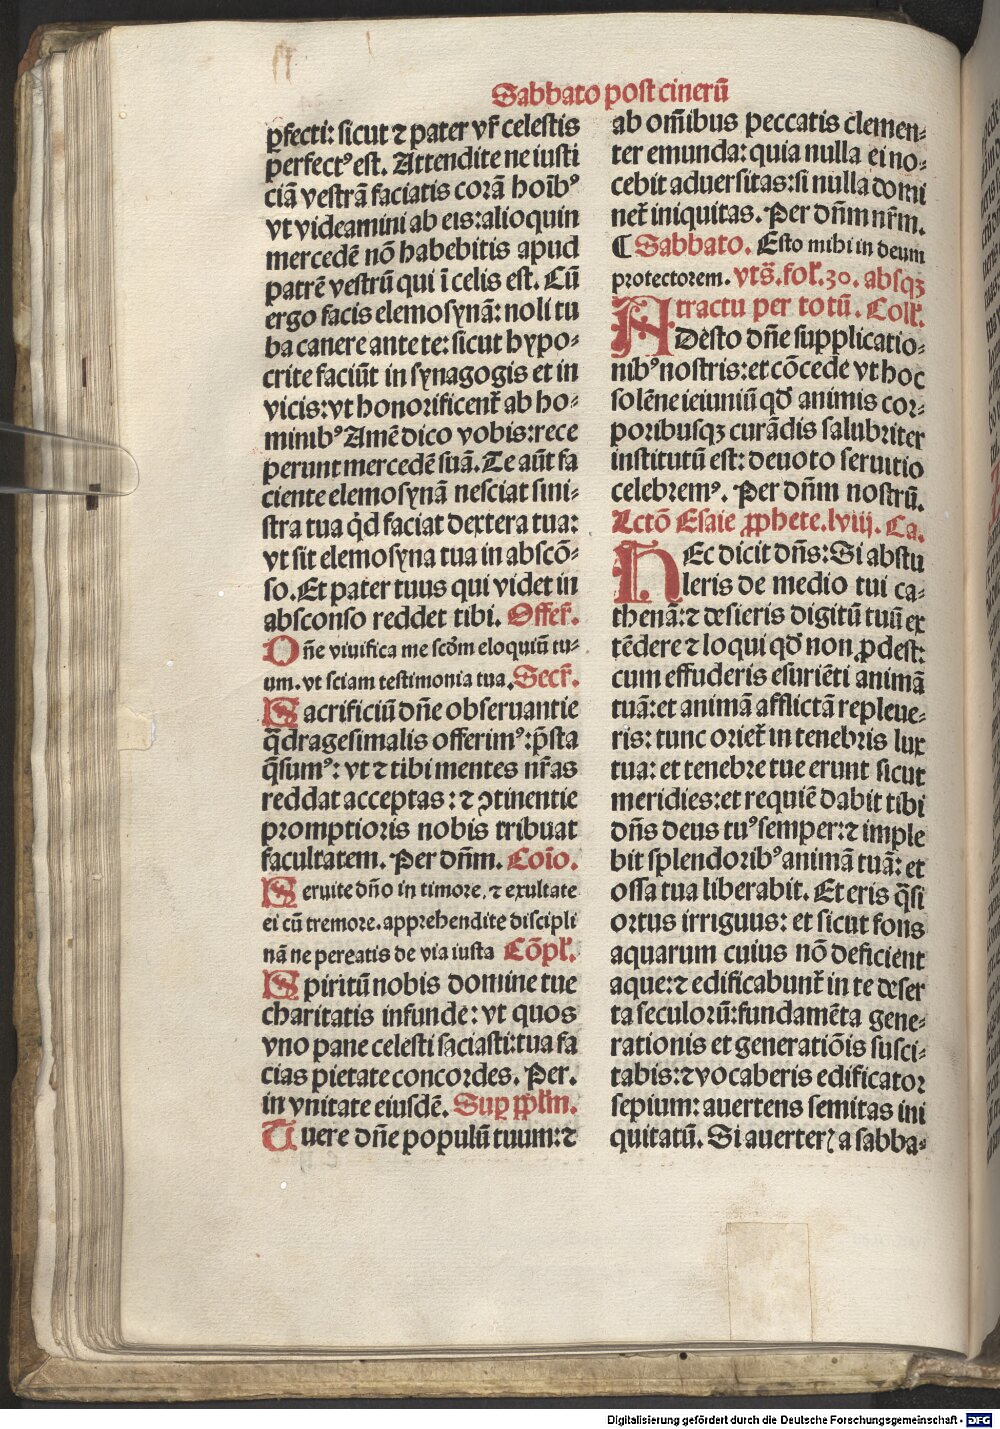 Sabbato post cinerū
ꝑfecti: sicut ⁊ pater vr̄ celestis
perfectꝰ est. Attendite ne iusti
ciā vestrā faciatis corā hoībꝰ
vt videamini ab eis: alioquin
mercedē nō habebitis apud
patrē vestrū qui ī celis est. Cū
ergo facis elemosynā: noli tu
ba canere ante te: sicut hypo⸗
crite faciūt in synagogis et in
vicis: vt honorificent̄ ab ho⸗
minibꝰ Amē dico vobis: rece
perunt mercedē suā. Te aūt fa
ciente elemosynā nesciat sini⸗
stra tua qͥd faciat dextera tua:
vt sit elemosyna tua in abscō⸗
so. Et pater tuus qui videt in
absconso reddet tibi. Offer̄.
Dñe viuifica me scd̄m eloquiū tu⸗
um. vt sciam testimonia tua. Secr̄.
Sacrificiū dñe obseruantie
q̄dragesimalis offerimꝰ: p̄sta
q̄sumꝰ: vt ⁊ tibi mentes nr̄as
reddat acceptas: ⁊ ꝯtinentie
promptioris nobis tribuat
facultatem. Per dñm. Coīo.
Seruite dño in timore. ⁊ exultate
ei cū tremore. apprehendite discipli
nā ne pereatis de via iusta Cōpl̄.
Spiritū nobis domine tue
charitatis infunde: vt quos
vno pane celesti saciasti: tua fa
cias pietate concordes. Per.
in vnitate eiusdē. Suꝑ ppl̄m.
Tuere dñe populū tuum: ⁊
ab om̄ibus peccatis clemen⸗
ter emunda: quia nulla ei no⸗
cebit aduersitas: si nulla domi
net̄ iniquitas. Per dñm nr̄m.
¶ Sabbato. Esto mihi in deum
protectorem. vts̄. fol̄. 30. absqꝫ
tractu per totū. Coll̄.
ADesto dñe supplicatio⸗
nibꝰ nostris: et cōcede vt hoc
solēne ieiuniū qd̄ animis cor⸗
poribusqꝫ curādis salubriter
institutū est: deuoto seruitio
celebremꝰ. Per dñm nostrū.
Lctō Esaie ꝓphete. lviij. Ca.
HEc dicit dñs: Si abstu
leris de medio tui ca⸗
thenā: ⁊ desieris digitū tuū ex
tēdere ⁊ loqui qd̄ non ꝓdest:
cum effuderis esuriēti animā
tuā: et animā afflictā repleue⸗
ris: tunc oriet̄ in tenebris lux
tua: et tenebre tue erunt sicut
meridies: et requiē dabit tibi
dñs deus tuꝰ semper: ⁊ imple
bit splendoribꝰ animā tuā: et
ossa tua liberabit. Et eris q̄si
ortus irriguus: et sicut fons
aquarum cuius nō deficient
aque: ⁊ edificabunt̄ in te deser
ta seculorū: fundamēta gene⸗
rationis et generatiōis susci⸗
tabis: ⁊ vocaberis edificator
sepium: auertens semitas ini
quitatū. Si auerterꝭ a sabba⸗
Digitalisierung gefördert durch die Deutsche Forschungsgemeinschaft - DFG